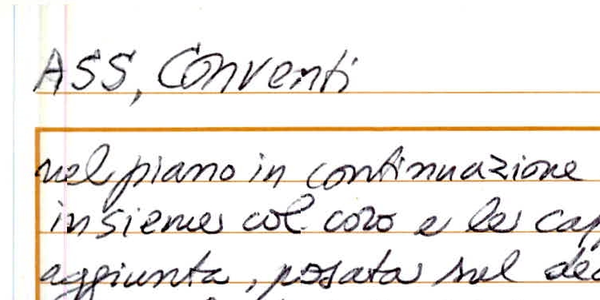 ASS, Conventi
nel piano in continuazione
insieme col coro e le cap
aggiunta, posata sul dec